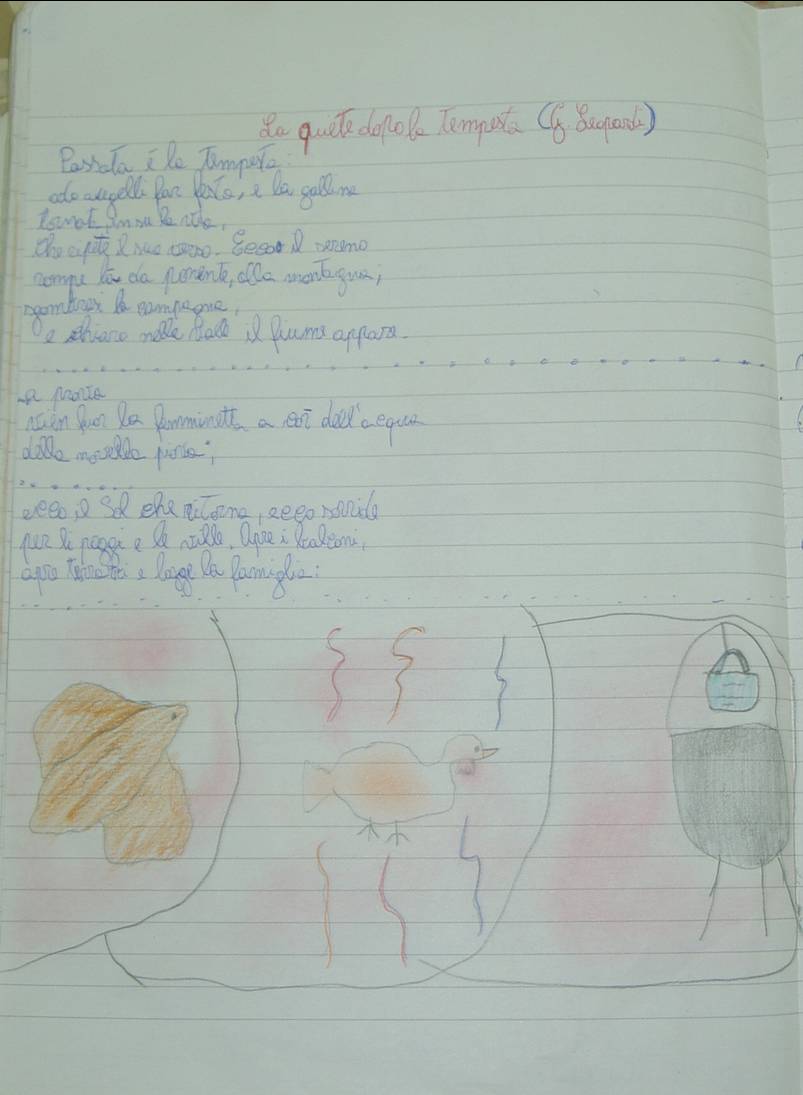 La quiete dopo la Tempesta (G. Leopardi)
Passata è la Tempesta:
odo augelli far festa, e la gallina
tornata in su la via,
che ripete il suo verso. Ecco il sereno
rompe là da ponente, alla montagna;
sgombrasi la campagna,
e chiaro nella valle il fiume appare.
a prova
vien fuor la femminetta a còr dell'acqua
della novella piova;
ecco il Sol che ritorna, ecco sorride
per li poggi e le ville. Apre i balconi,
apre terrazzi e logge la famiglia: